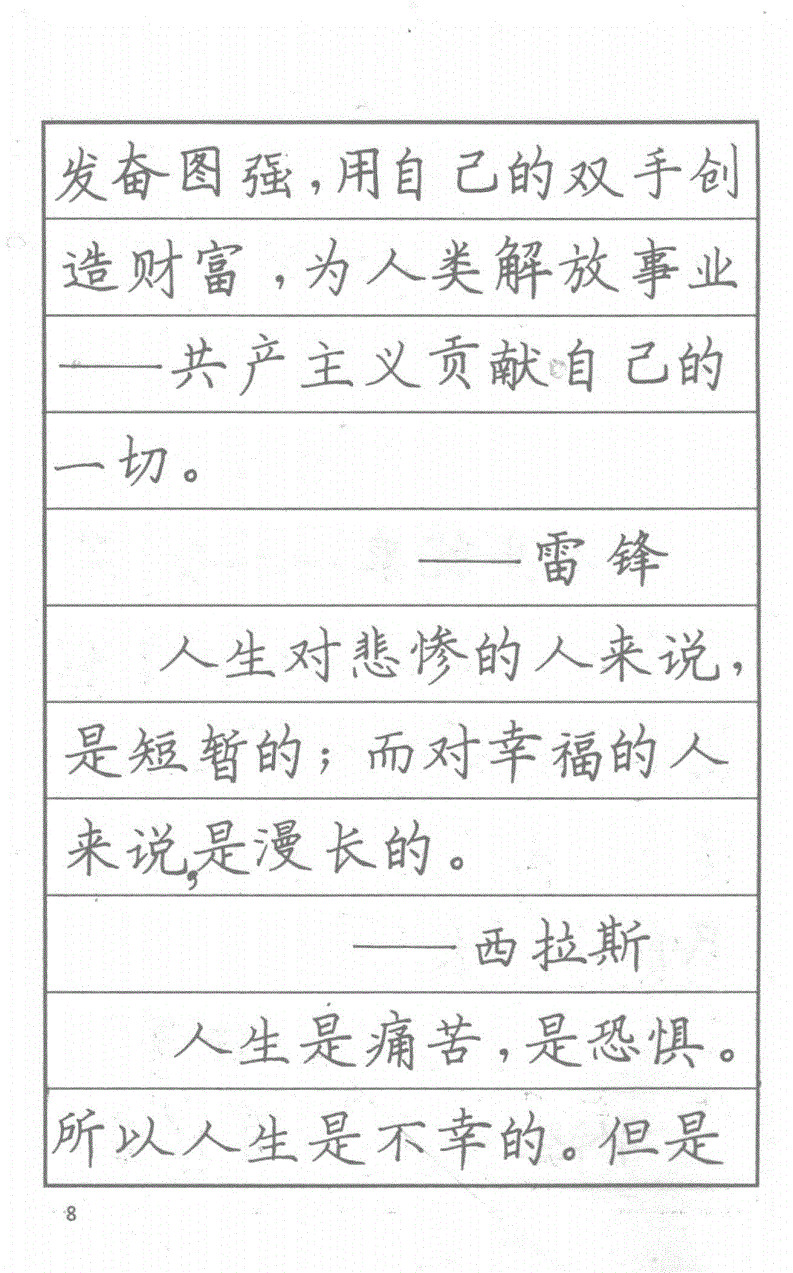 发奋图强,用自己的双手创
造财富,为人类解放事业
——共产主义贡献自己的
一切。
——雷锋
人生对悲惨的人来说,
是短暂的;而对幸福的人
来说,是漫长的。
——西拉斯
人生是痛苦,是恐惧。
所以人生是不幸的。但是
8